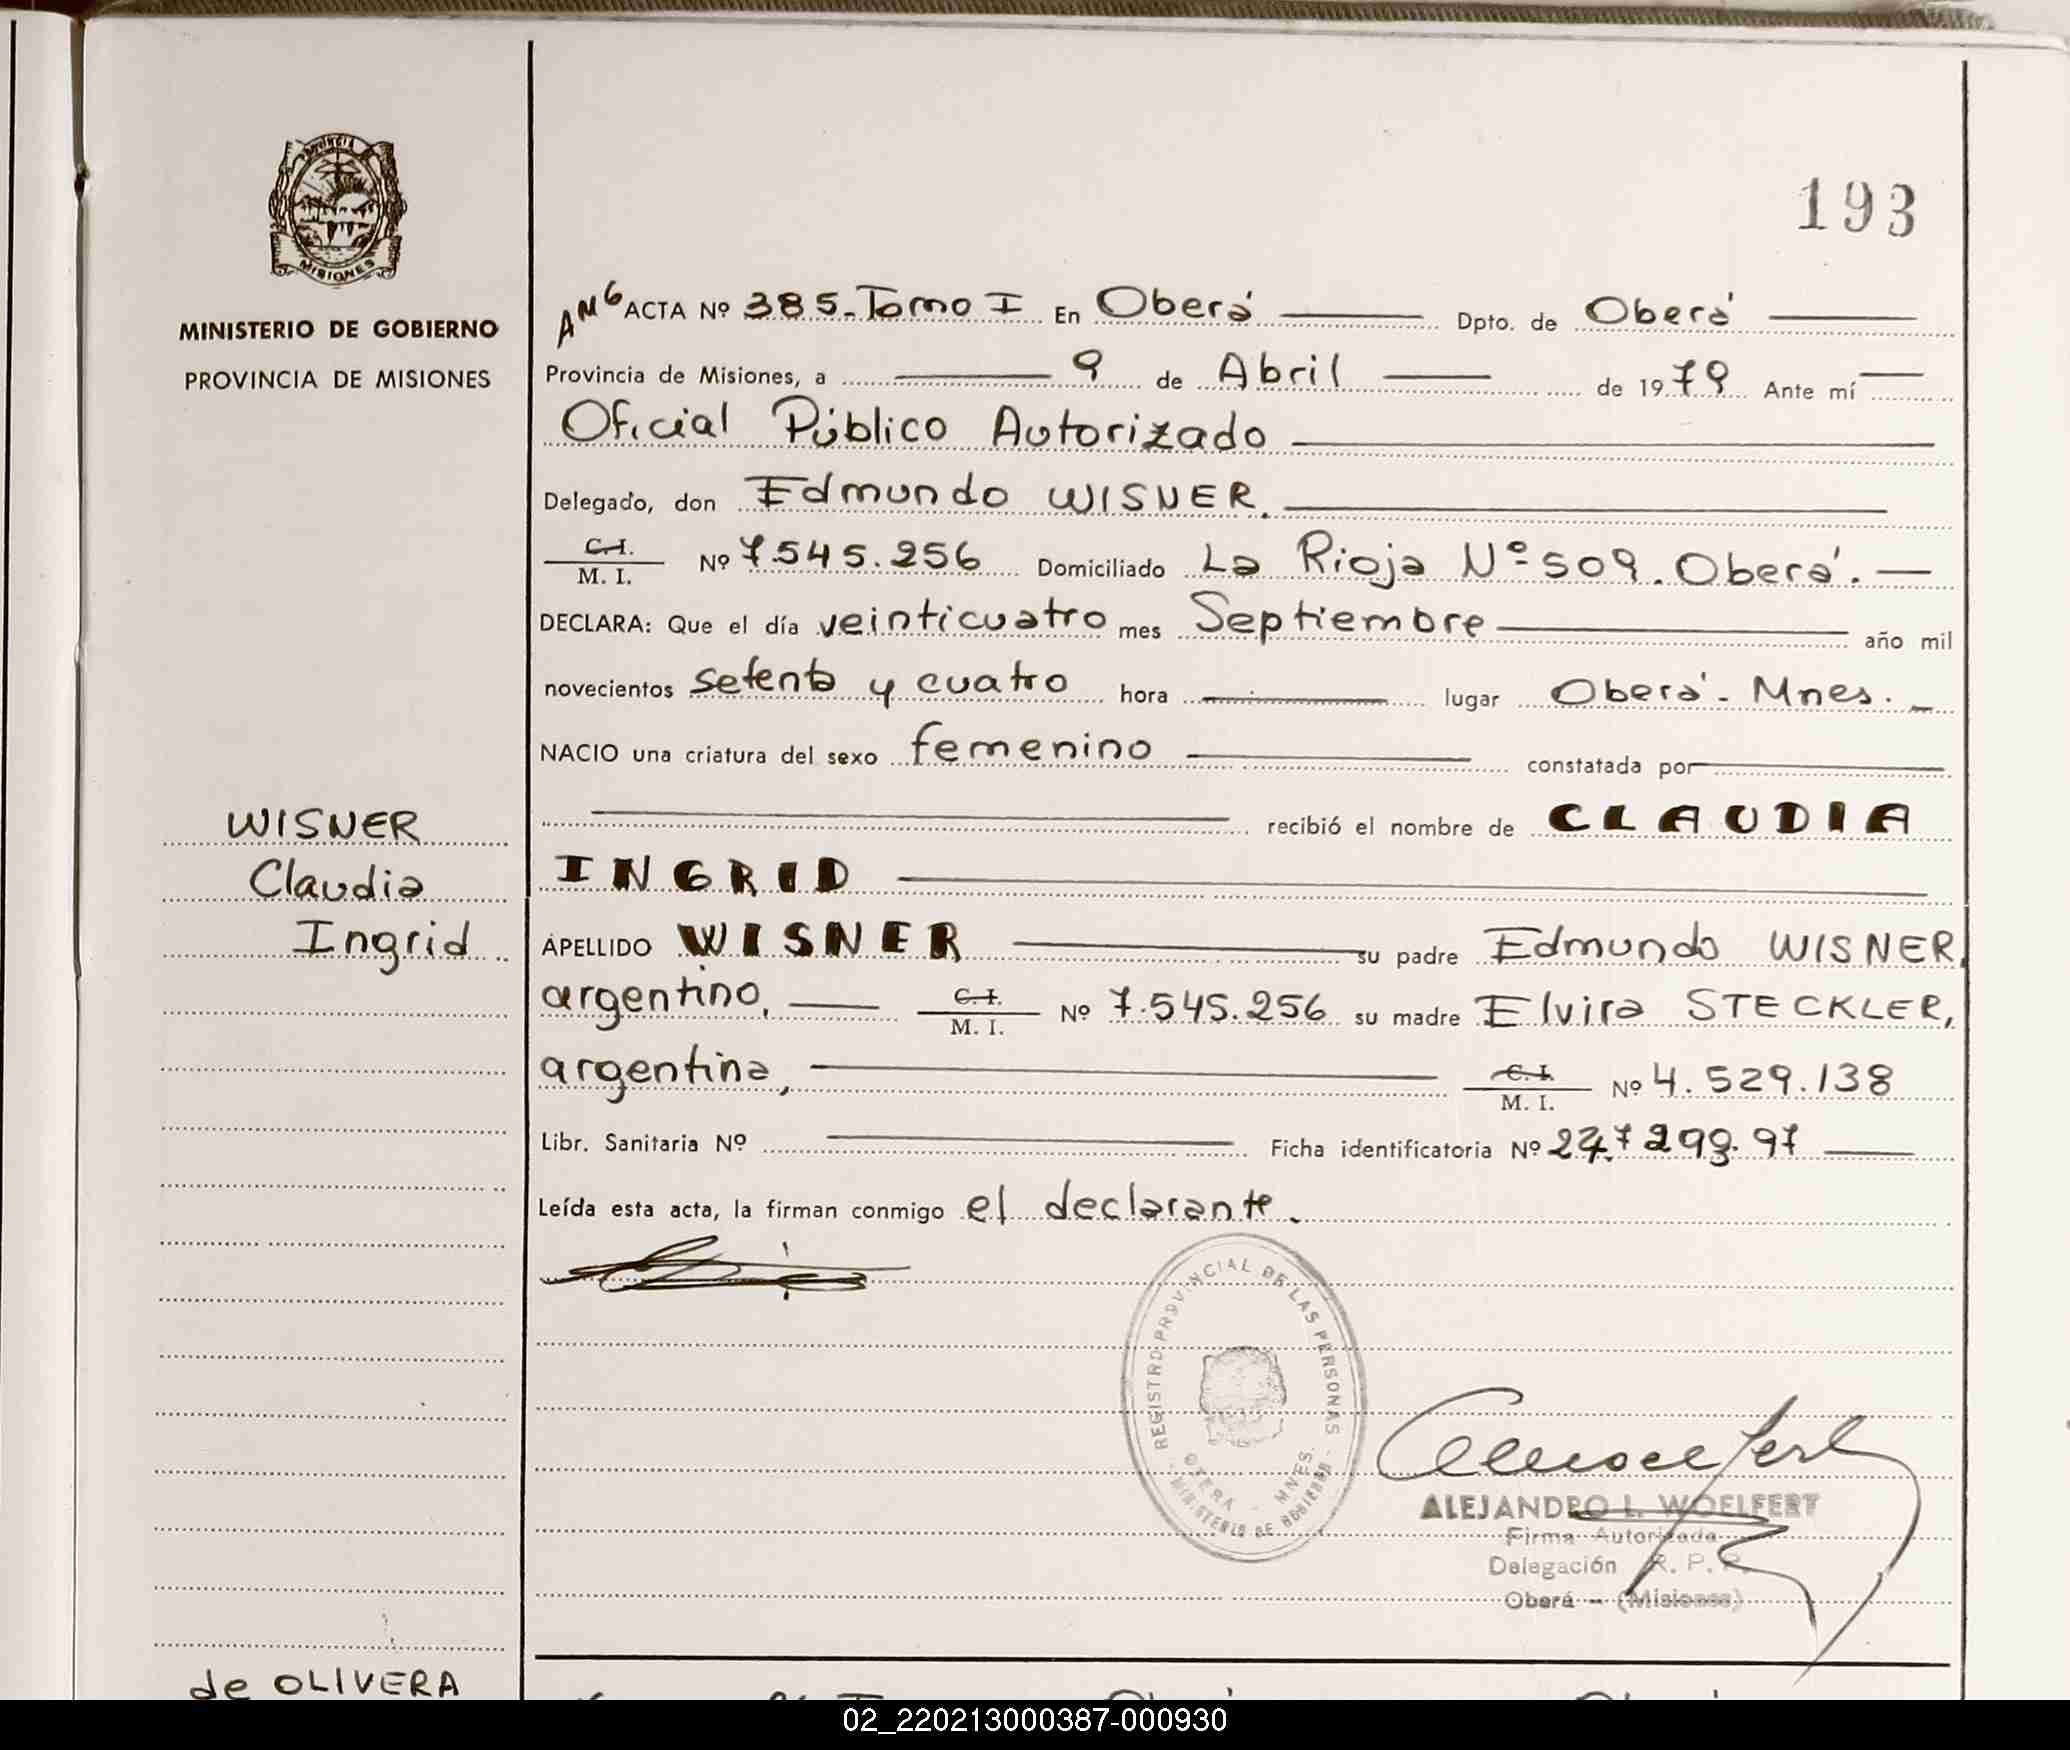 193
PROVINCIA
MISIONES
MINISTERIO DE GOBIERNO
PROVINCIA DE MISIONES
AMG ACTA Nº 385. Tomo I En Oberá Dpto. de Oberá
Provincia de Misiones, a 9 de Abril de 1979 Ante mí
Oficial Público Autorizado
Delegado, don Edmundo WISNER.
C. I.
M. I. Nº 7.545.256 Domiciliado La Rioja Nº 509. Oberá.
DECLARA: Que el día veinticuatro mes Septiembre año mil
novecientos setenta y cuatro hora lugar Oberá - Mnes.
NACIO una criatura del sexo femenino constatada por
recibió el nombre de CLAUDIA
INGRID
APELLIDO WISNER su padre Edmundo WISNER,
argentino, C. I.
M. I. Nº 7.545.256 su madre Elvira STECKLER,
argentina, C. I.
M. I. Nº 4.529.138
Libr. Sanitaria Nº Ficha identificatoria Nº
Leída esta acta, la firman conmigo el declarante.
WISNER
Claudia
Ingrid
REGISTRO PROVINCIAL DE LAS PERSONAS
OBERA - MNES.
MINISTERIO DE GOBIERNO
ALEJANDRO L. WOELFERT
Firma Autorizada
Delegación R. P. P.
Oberá - (Misiones)
de OLIVERA
02_220213000387-000930